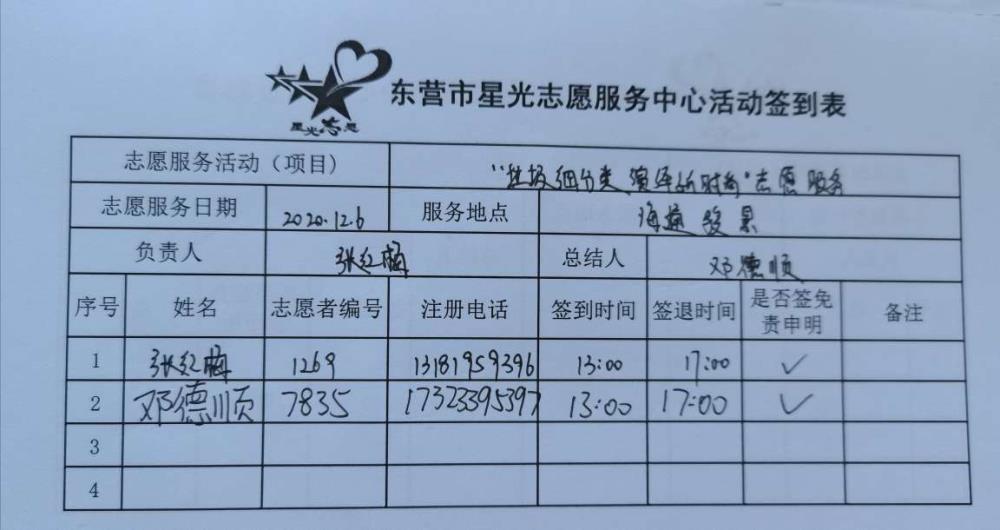 星光志愿
东营市星光志愿服务中心活动签到表
志愿服务活动（项目） “垃圾细分类 演绎新时尚”志愿服务
志愿服务日期 2020.12.6 服务地点 海通骏景
负责人 张红梅 总结人 邓德顺
序号 姓名 志愿者编号 注册电话 签到时间 签退时间 是否签免责申明 备注
1 张红梅 1269 13181959396 13:00 17:00 ✓
2 邓德顺 7835 17323395397 13:00 17:00 ✓
3
4